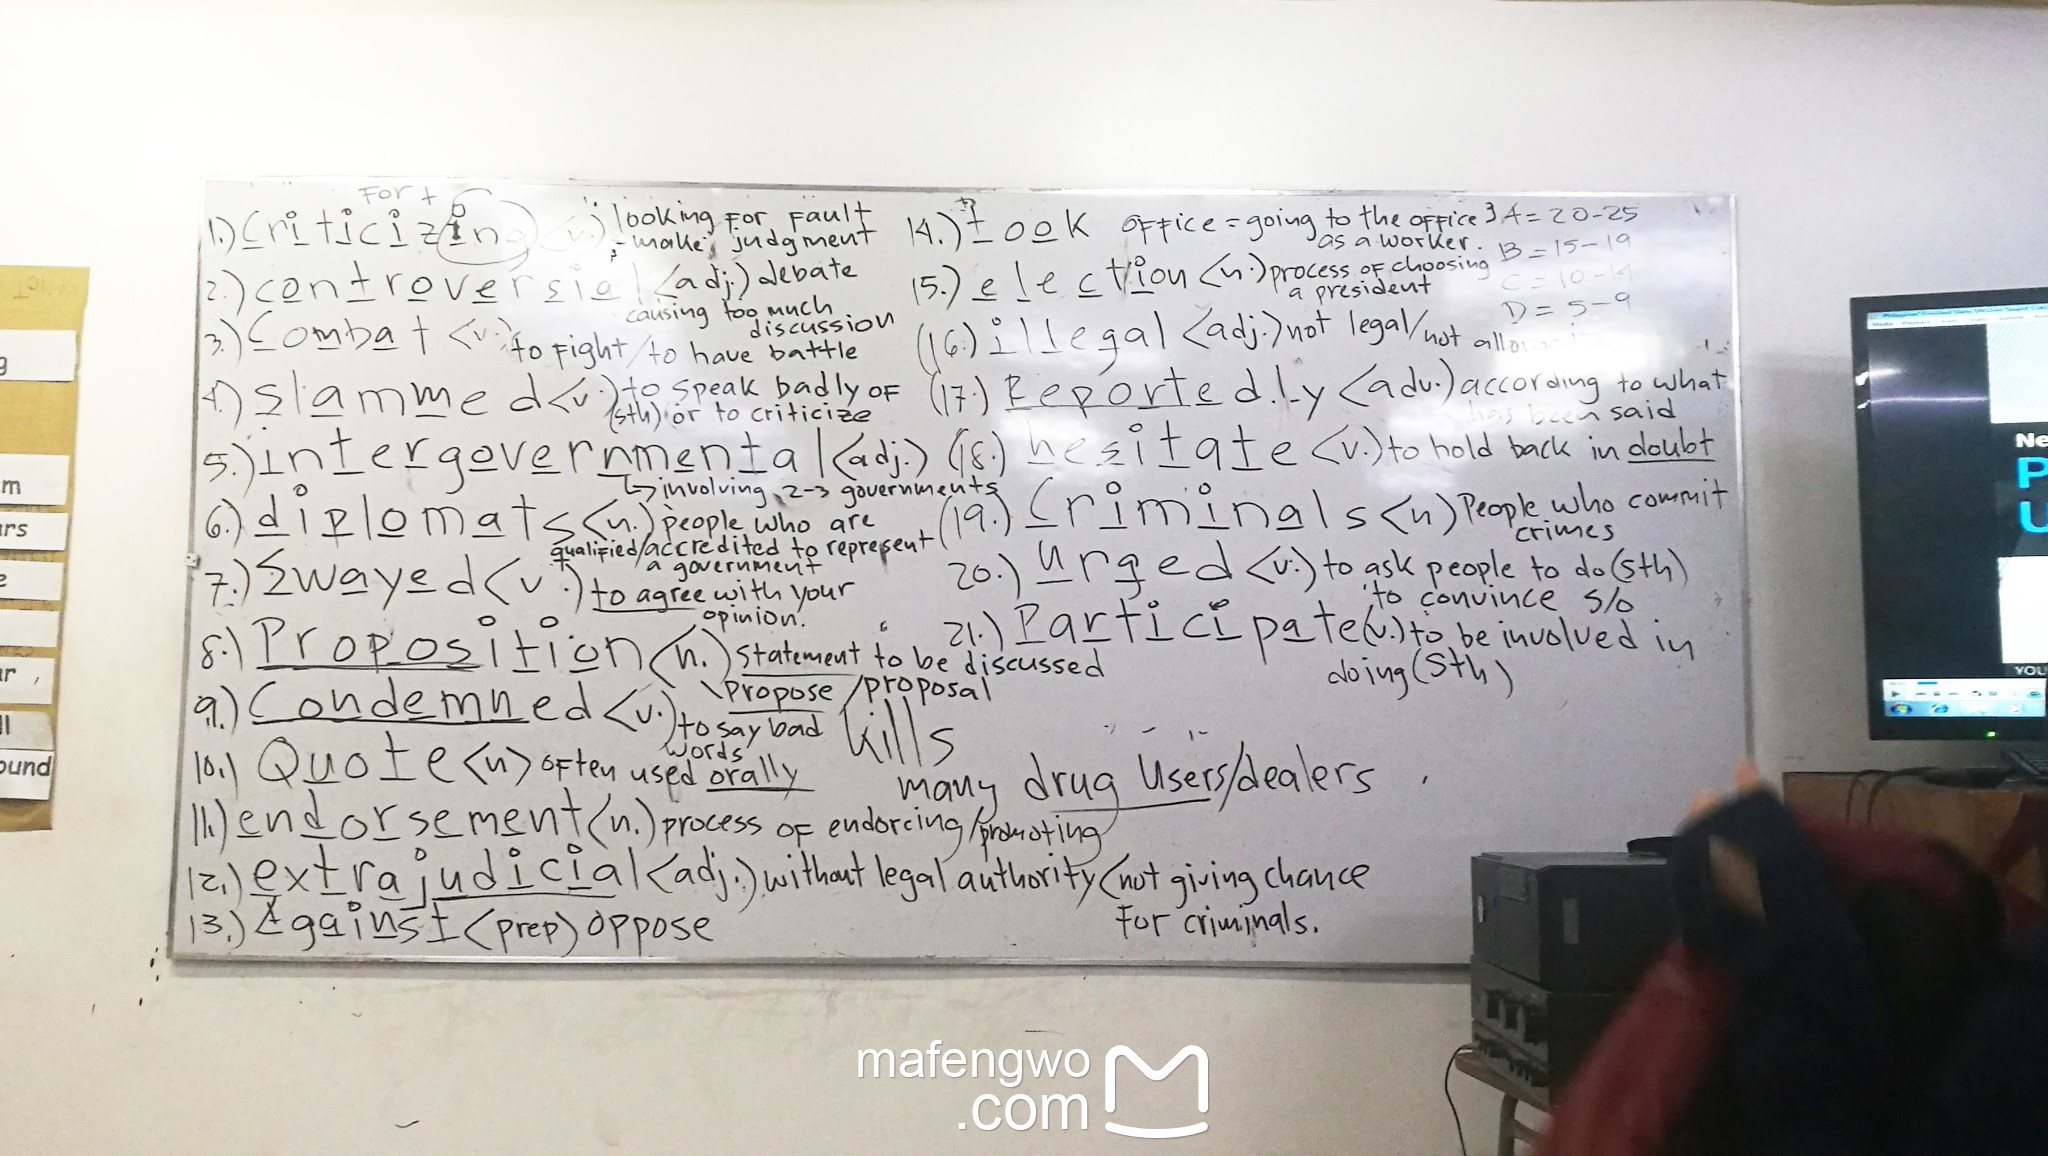 For +
1.) Criticizing <v.) looking For Fault
- make judgment
2.) controversial <adj.) debate
causing too much
discussion
3.) Combat <v.) to Fight/to have battle
4.) slammed <v.) to speak badly of
(sth) or to criticize
5.) intergovernmental <adj.)
↳ involving 2-3 governments
6.) diplomats <n.) people who are
qualified/accredited to represent
a government
7.) Swayed <v.) to agree with your
opinion.
8.) Proposition <n.) statement to be discussed
\propose/proposal
9.) Condemned <v.) to say bad
words
10.) Quote <n> often used orally
11.) endorsement <n.) process of endorcing/promoting
12.) extrajudicial <adj.) without legal authority (not giving chance
For criminals.
13.) Against <prep) oppose
14.) took office = going to the office
as a worker.
15.) election <n.) process of choosing
a president
(16.) illegal <adj.) not legal/not
(17.) Reportedly <adv.) according to what
has been said
(18.) hesitate <v.) to hold back in doubt
(19.) Criminals <n) People who commit
crimes
20.) urged <v.) to ask people to do (sth)
to convince s/o
21.) Participate <v.) to be involved in
doing (Sth)
kills
many drug Users/dealers
A = 20-25
B = 15-19
C = 10-14
D = 5-9
Ne
P
U
YOU
g
m
ars
e
ar,
ll
ound
mafengwo
.com